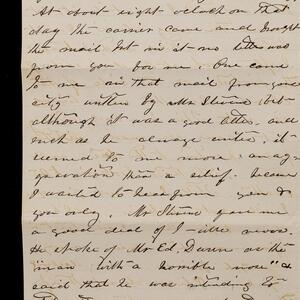 At about eight oclock on that
day the carrier came and brought
the mail but in it no letter was
from you for me. One came
to me in that mail from your
city written by Mr Stevens but
although it was a good letter, and
such as he always writes, it
seemed to me more an ag-
gravation than a relief. because
I wanted to hear from you &
you only. Mr gave me
a good deal of news.
He spoke of Mr Ed. Dunn as the
"man with a horrible nose" &
said that he was intending to